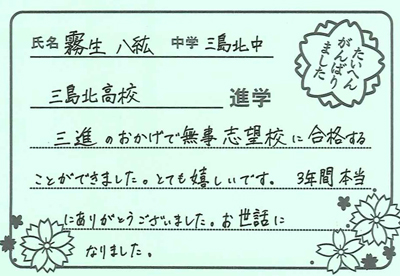 氏名 霧生 八紘 中学 三島北中
たいへん
がんばり
ました
三島北高校 進学
三進 のおかげで無事 志望校 に 合格する
ことができました。とても嬉しいです。 3年間本当
にありがとうございました。お世話に
なりました。